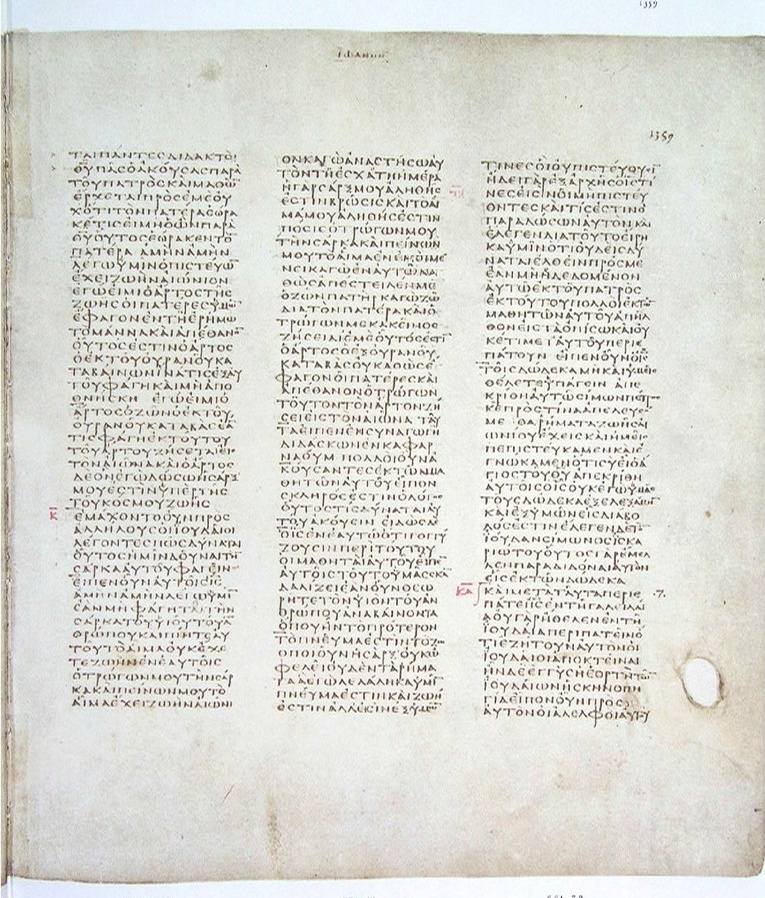 ΙΩΑΝΝΗΝ
1359
1359
ΤΑΙΠΑΝΤΕϹΔΙΔΑΚΤΟΙ
Θ̅Υ̅ΠΑϹΟΑΚΟΥϹΑϹΠΑΡΑ
ΤΟΥΠΑΤΡΟϹΚΑΙΜΑΘΩ̅
ΕΡΧΕΤΑΙΠΡΟϹΕΜΕΟΥ
ΧΟΤΙΤΟΝΠΑΤΕΡΑΕΩΡΑ
ΚΕΤΙϹΕΙΜΗΟΩΝΠΑΡΑ
Θ̅Υ̅ΟΥΤΟϹΕΩΡΑΚΕΝΤΟ̅
ΠΑΤΕΡΑ ΑΜΗΝΑΜΗΝ
ΛΕΓΩΥΜΙΝΟΠΙϹΤΕΥΩ̅
ΕΧΕΙΖΩΗΝΑΙΩΝΙΟΝ
ΕΓΩΕΙΜΙΟΑΡΤΟϹΤΗϹ
ΖΩΗϹΟΙΠΑΤΕΡΕϹΥΜΩ̅
ΕΦΑΓΟΝΕΝΤΗΕΡΗΜΩ
ΤΟΜΑΝΝΑΚΑΙΑΠΕΘΑΝΟ̅
ΟΥΤΟϹΕϹΤΙΝΟΑΡΤΟϹ
ΟΕΚΤΟΥΟΥΡΑΝΟΥΚΑ
ΤΑΒΑΙΝΩΝΙΝΑΤΙϹΕΞΑΥ
ΤΟΥΦΑΓΗΚΑΙΜΗΑΠΟ
ΘΝΗϹΚΗ ΕΓΩΕΙΜΙΟ
ΑΡΤΟϹΟΖΩΝΟΕΚΤΟΥ
ΟΥΡΑΝΟΥΚΑΤΑΒΑϹΕΑ̅
ΤΙϹΦΑΓΗΕΚΤΟΥΤΟΥ
ΤΟΥΑΡΤΟΥΖΗϹΕΤΑΙΕΙϹ
ΤΟΝΑΙΩΝΑΚΑΙΟΑΡΤΟϹ
ΔΕΟΝΕΓΩΔΩϹΩΗϹΑΡΞ
ΜΟΥΕϹΤΙΝΥΠΕΡΤΗϹ
ΤΟΥΚΟϹΜΟΥΖΩΗϹ
Κ̅ ΕΜΑΧΟΝΤΟΟΥΝΠΡΟϹ
ΑΛΛΗΛΟΥϹΟΙΙΟΥΔΑΙΟΙ
ΛΕΓΟΝΤΕϹΠΩϹΔΥΝΑΤΑΙ
ΟΥΤΟϹΗΜΙΝΔΟΥΝΑΙΤΗ̅
ϹΑΡΚΑΑΥΤΟΥΦΑΓΕΙΝ
ΕΙΠΕΝΟΥΝΑΥΤΟΙϹΟΙ̅Ϲ̅
ΑΜΗΝΑΜΗΝΛΕΓΩΥΜΙ̅
ΕΑΝΜΗΦΑΓΗΤΕΤΗΝ
ϹΑΡΚΑΤΟΥΥΙΟΥΤΟΥΑ̅
ΘΡΩΠΟΥΚΑΙΠΙΗΤΕΑΥ
ΤΟΥΤΟΑΙΜΑΟΥΚΕΧΕ
ΤΕΖΩΗΝΕΝΕΑΥΤΟΙϹ
ΟΤΡΩΓΩΝΜΟΥΤΗΝϹΑΡ
ΚΑΚΑΙΠΕΙΝΩΝΜΟΥΤΟ
ΑΙΜΑΕΧΕΙΖΩΗΝΑΙΩΝΙ
ΟΝΚΑΓΩΑΝΑϹΤΗϹΩΑΥ
ΤΟΝΤΗΕϹΧΑΤΗΗΜΕΡΑ
ΗΓΑΡϹΑΡΞΜΟΥΑΛΗΘΗϹ
ΕϹΤΙΝΒΡΩϹΙϹΚΑΙΤΟΑΙ
ΜΑΜΟΥΑΛΗΘΗϹΕϹΤΙΝ
ΠΟϹΙϹΟΤΡΩΓΩΝΜΟΥ
ΤΗΝϹΑΡΚΑΚΑΙΠΕΙΝΩΝ
ΜΟΥΤΟΑΙΜΑΕΝΕΜΟΙΜΕ
ΝΕΙΚΑΓΩΕΝΑΥΤΩΚΑ
ΘΩϹΑΠΕϹΤΕΙΛΕΝΜΕ
ΟΖΩΝΠΑΤΗΡΚΑΓΩΖΩ
ΔΙΑΤΟΝΠΑΤΕΡΑΚΑΙΟ
ΤΡΩΓΩΝΜΕΚΑΚΕΙΝΟϹ
ΖΗϹΕΙΔΙΕΜΕΟΥΤΟϹΕϹΤΙ̅
ΟΑΡΤΟϹΟΕΞΟΥΡΑΝΟΥ
ΚΑΤΑΒΑϹΟΥΚΑΘΩϹΕ
ΦΑΓΟΝΟΙΠΑΤΕΡΕϹΚΑΙ
ΑΠΕΘΑΝΟΝΟΤΡΩΓΩΝ
ΤΟΥΤΟΝΤΟΝΑΡΤΟΝΖΗ
ϹΕΙΕΙϹΤΟΝΑΙΩΝΑ ΤΑΥ
ΤΑΕΙΠΕΝΕΝϹΥΝΑΓΩΓΗ
ΔΙΔΑϹΚΩΝΕΝΚΑΦΑΡ
ΝΑΟΥΜ ΠΟΛΛΟΙΟΥΝΑ
ΚΟΥϹΑΝΤΕϹΕΚΤΩΝΜΑ
ΘΗΤΩΝΑΥΤΟΥΕΙΠΟΝ
ϹΚΛΗΡΟϹΕϹΤΙΝΟΛΟΓΟϹ
ΟΥΤΟϹΤΙϹΔΥΝΑΤΑΙΑΥ
ΤΟΥΑΚΟΥΕΙΝ ΕΙΔΩϹΔΕ
ΟΙ̅Ϲ̅ΕΝΕΑΥΤΩΟΤΙΓΟΓΓΥ
ΖΟΥϹΙΝΠΕΡΙΤΟΥΤΟΥ
ΟΙΜΑΘΗΤΑΙΑΥΤΟΥΕΙΠΕ̅
ΑΥΤΟΙϹΤΟΥΤΟΥΜΑϹϹΚΑ̅
ΔΑΛΙΖΕΙΕΑΝΟΥΝΘΕΩ
ΡΗΤΕΤΟΝΥΙΟΝΤΟΥΑΝ
ΘΡΩΠΟΥΑΝΑΒΑΙΝΟΝΤΑ
ΟΠΟΥΗΝΤΟΠΡΟΤΕΡΟΝ
ΤΟΠΝΕΥΜΑΕϹΤΙΝΤΟΖΩ
ΟΠΟΙΟΥΝΗϹΑΡΞΟΥΚΩ
ΦΕΛΕΙΟΥΔΕΝΤΑΡΗΜΑ
ΤΑΑΕΓΩΛΕΛΑΛΗΚΑΥΜΙ̅
ΠΝΕΥΜΑΕϹΤΙΝΚΑΙΖΩΗ
ΕϹΤΙΝΑΛΛΑΕΙϹΙΝΕΞΥΜΩ̅
ΤΙΝΕϹΟΙΟΥΠΙϹΤΕΥΟΥϹΙ̅
ΗΔΕΙΓΑΡΕΞΑΡΧΗϹΟΙ̅Ϲ̅ΤΙ
ΝΕϹΕΙϹΙΝΟΙΜΗΠΙϹΤΕΥ
ΟΝΤΕϹΚΑΙΤΙϹΕϹΤΙΝΟ
ΠΑΡΑΔΩϹΩΝΑΥΤΟΝΚΑΙ
ΕΛΕΓΕΝΔΙΑΤΟΥΤΟΕΙΡΗ
ΚΑΥΜΙΝΟΤΙΟΥΔΕΙϹΔΥ
ΝΑΤΑΙΕΛΘΕΙΝΠΡΟϹΜΕ
ΕΑΝΜΗΗΔΕΔΟΜΕΝΟΝ
ΑΥΤΩΕΚΤΟΥΠΑΤΡΟϹ
ΕΚΤΟΥΤΟΥΠΟΛΛΟΙΕΚΤΩ̅
ΜΑΘΗΤΩΝΑΥΤΟΥΑΠΗΛ
ΘΟΝΕΙϹΤΑΟΠΙϹΩΚΑΙΟΥ
ΚΕΤΙΜΕΤΑΥΤΟΥΠΕΡΙΕ
ΠΑΤΟΥΝ ΕΙΠΕΝΟΥΝΟΙ̅Ϲ̅
ΤΟΙϹΔΩΔΕΚΑΜΗΚΑΙΥΜΕΙϹ
ΘΕΛΕΤΕΥΠΑΓΕΙΝ ΑΠΕ
ΚΡΙΘΗΑΥΤΩϹΙΜΩΝΠΕΤΡΟϹ
Κ̅Ε̅ΠΡΟϹΤΙΝΑΑΠΕΛΕΥϹΟ
ΜΕΘΑΡΗΜΑΤΑΖΩΗϹΑΙ
ΩΝΙΟΥΕΧΕΙϹΚΑΙΗΜΕΙϹ
ΠΕΠΙϹΤΕΥΚΑΜΕΝΚΑΙΕ
ΓΝΩΚΑΜΕΝΟΤΙϹΥΕΙΟΑ
ΓΙΟϹΤΟΥΘ̅Υ̅ΑΠΕΚΡΙΘΗ
ΑΥΤΟΙϹΟΙ̅Ϲ̅ΟΥΚΕΓΩΥΜΑϹ
ΤΟΥϹΔΩΔΕΚΑΕΞΕΛΕΞΑΜΗ̅
ΚΑΙΕΞΥΜΩΝΕΙϹΔΙΑΒΟ
ΛΟϹΕϹΤΙΝΕΛΕΓΕΝΔΕΤΟ̅
ΙΟΥΔΑΝϹΙΜΩΝΟϹΙϹΚΑ
ΡΙΩΤΟΥΟΥΤΟϹΓΑΡΕΜΕΛ
ΛΕΝΠΑΡΑΔΙΔΟΝΑΙΑΥΤΟΝ
ΕΙϹΕΚΤΩΝΔΩΔΕΚΑ
Κ̅Α̅ ΚΑΙΜΕΤΑΤΑΥΤΑΠΕΡΙΕ ·7·
ΠΑΤΕΙΟΙ̅Ϲ̅ΕΝΤΗΓΑΛΕΙΛΑΙ
ΑΟΥΓΑΡΗΘΕΛΕΝΕΝΤΗ
ΙΟΥΔΑΙΑΠΕΡΙΠΑΤΕΙΝΟ
ΤΙΕΖΗΤΟΥΝΑΥΤΟΝΟΙ
ΙΟΥΔΑΙΟΙΑΠΟΚΤΕΙΝΑΙ
ΗΝΔΕΕΓΓΥϹΗΕΟΡΤΗΤΩ̅
ΙΟΥΔΑΙΩΝΗϹΚΗΝΟΠΗ
ΓΙΑΕΙΠΟΝΟΥΝΠΡΟϹ
ΑΥΤΟΝΟΙΑΔΕΛΦΟΙΑΥΤΟΥ